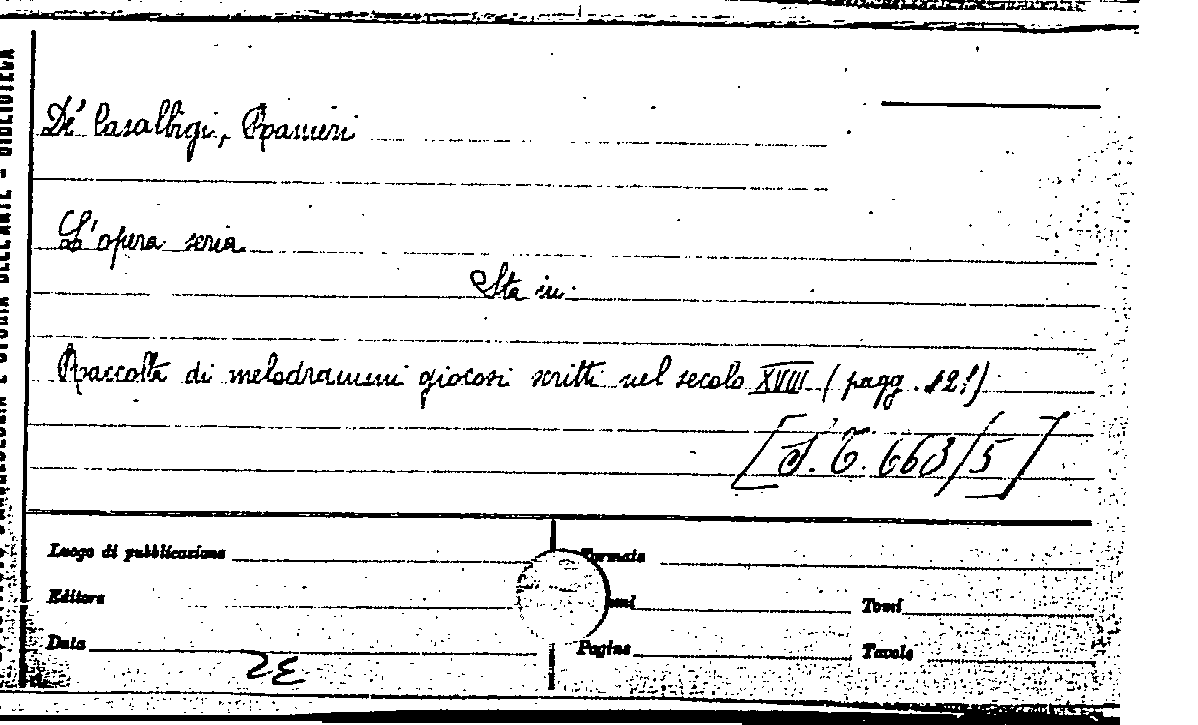 De' Casalbigi, Ranieri
L'opera seria
Sta in:
Raccolta di melodrammi giocosi scritti nel secolo XVIII (pagg. 121)
[S.T. 663/5]
Luogo di pubblicazione
Formato
Editore
Tomi
Data
Pagine
Tavole